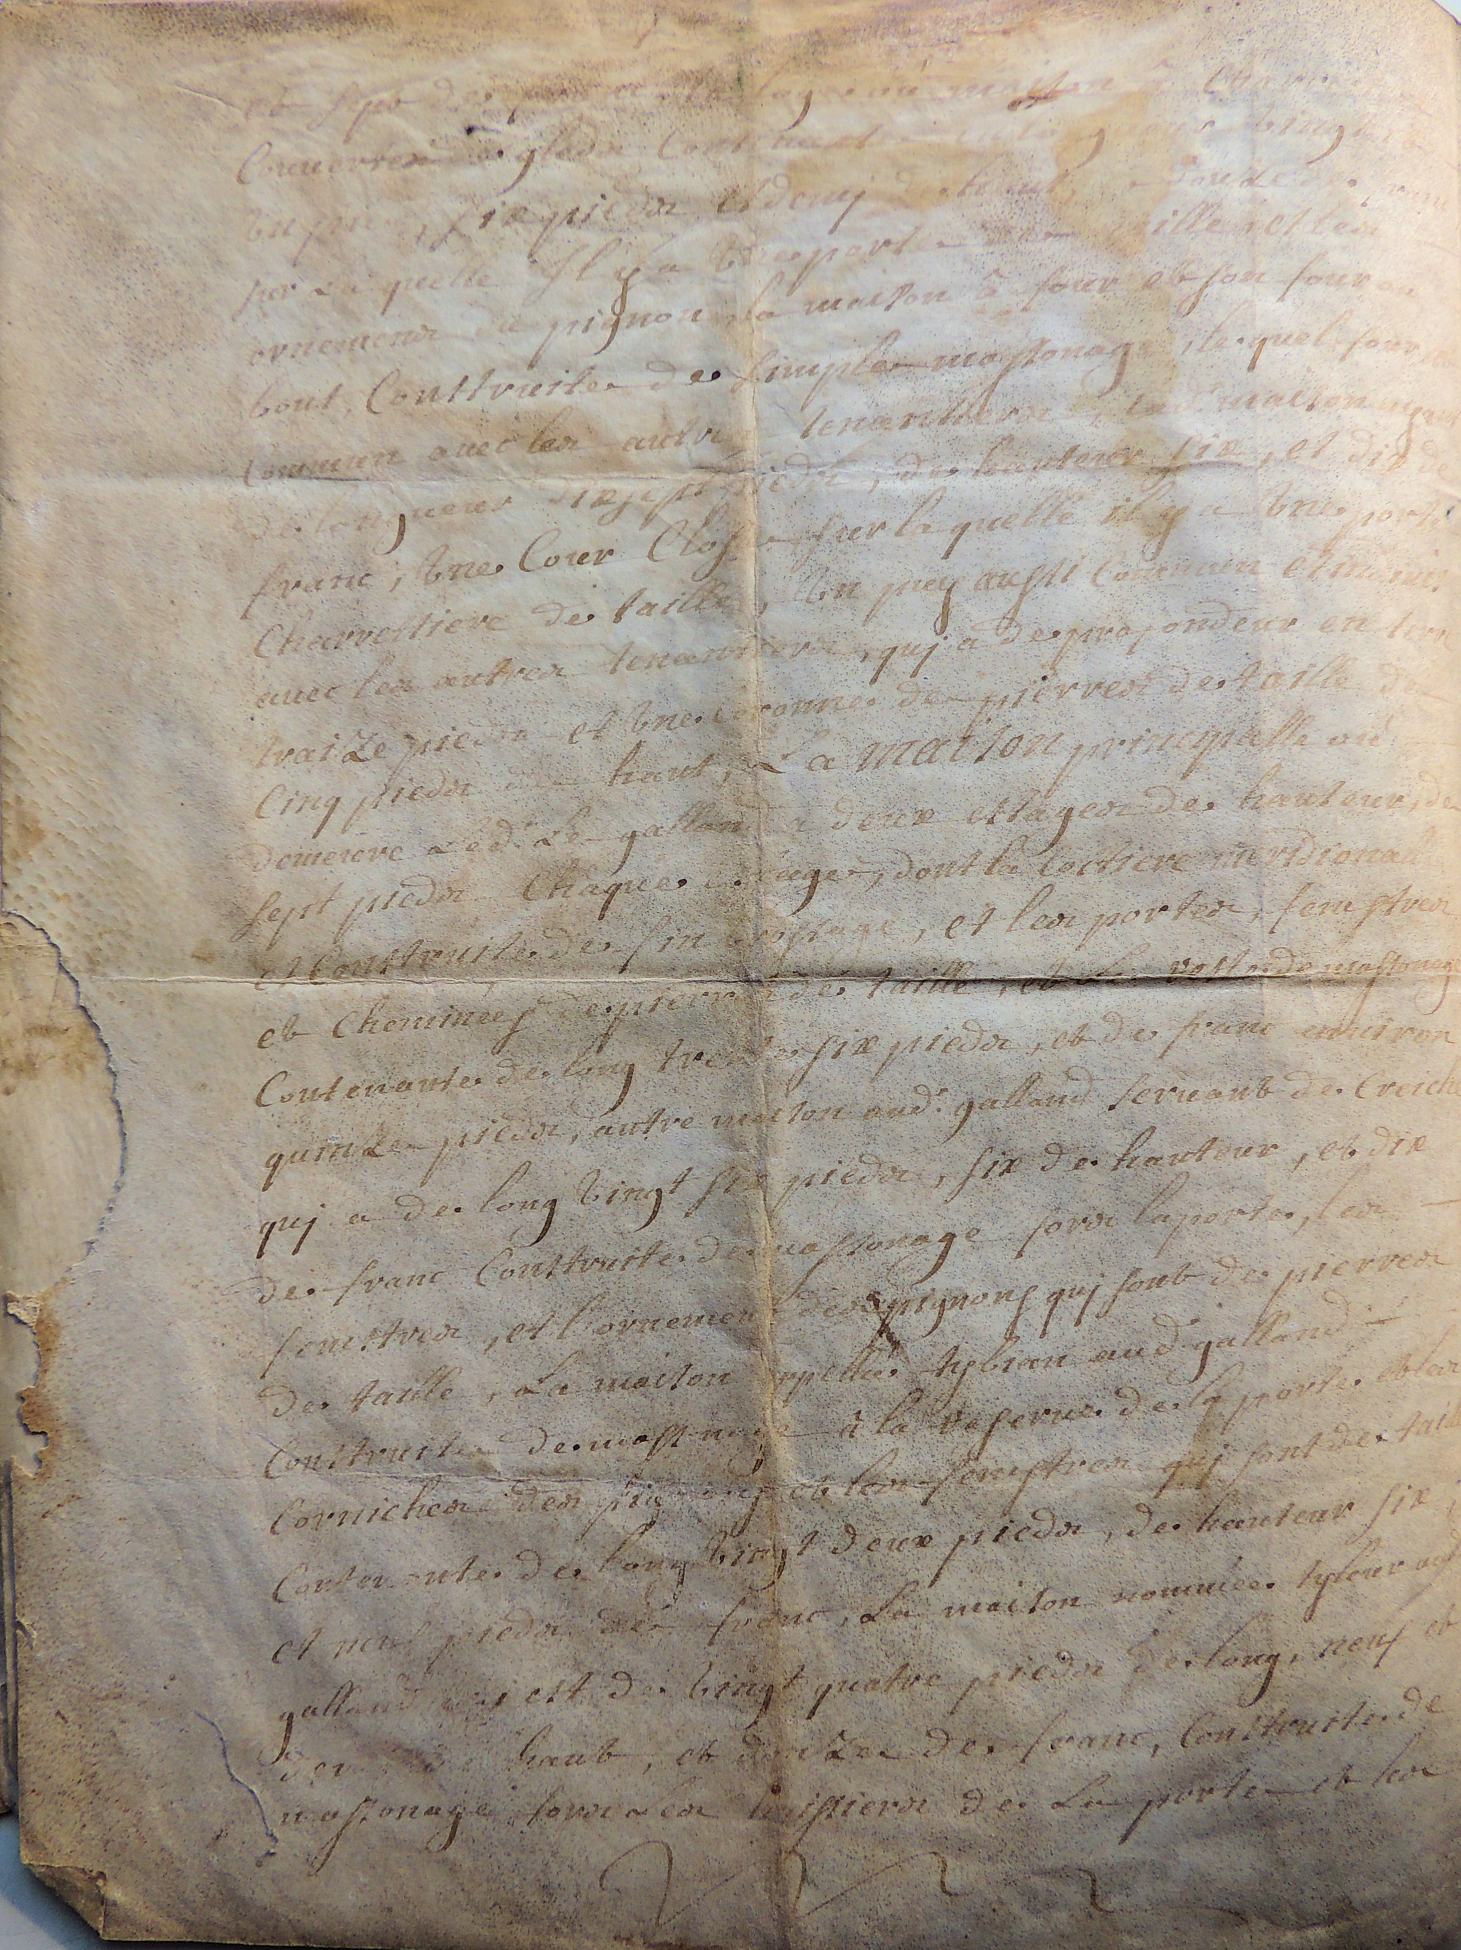 et sept de maison à
Couuerte de gledx Contenant vingt
six piedx et demj de haut, douze de
sur La quelle Il y a Vne porte taille et lex
ornemenx de pignon La maison à four et son four au
bout, Consttruitte de simple massonage, le quel four
Commun auec lex autrex tenantierx, lad. maison ayant
de longueur piedx, de hauteur six, et dix de
franc, Vne Cour Close sur la quelle il y a Vne porte
Charrettiere de taille, Vn puy aussi Commun et
auec lex autrex tenantierx, quj a de profondeur en terre
traize piedx et Vne Coronne de pierrex de taille de
Cinq piedx de haut, La maison principalle où
demeure Led. Le galland a deux ettagex de hauteur, de
sept piedx Chaque ettage, dont la Costiere meridionalle
et Construitte de fin massonage, et lex portex, fenestrex
et Cheminéex de pierrex de taille, et le reste de massonage
Contenante de long trente six piedx, et de franc enuiron
quinze piedx, autre maison aud. galland seruant de Creiche
quj a de long Vingt six piedx, six de hauteur, et dix
de franc Construitte de massonage forx la porte, lex
fenestrex, et l'ornement dex pignons quj sont de pierrex
de taille, La maison appellée tybian aud. galland
Construitte de massonage à la reserue de la porte et lex
Cornichex dex pignons et lex fenestrex quj sont de taille
Contenante de long Vingt deux piedx, de hauteur six,
et neuf piedx de franc, La maison nommée tyleur aud.
galland quj est de Vingt quatre piedx de long, neuf et
demj de haut, et douze de franc, Construitte de
massonage forx Lex huissierx de La porte et lex